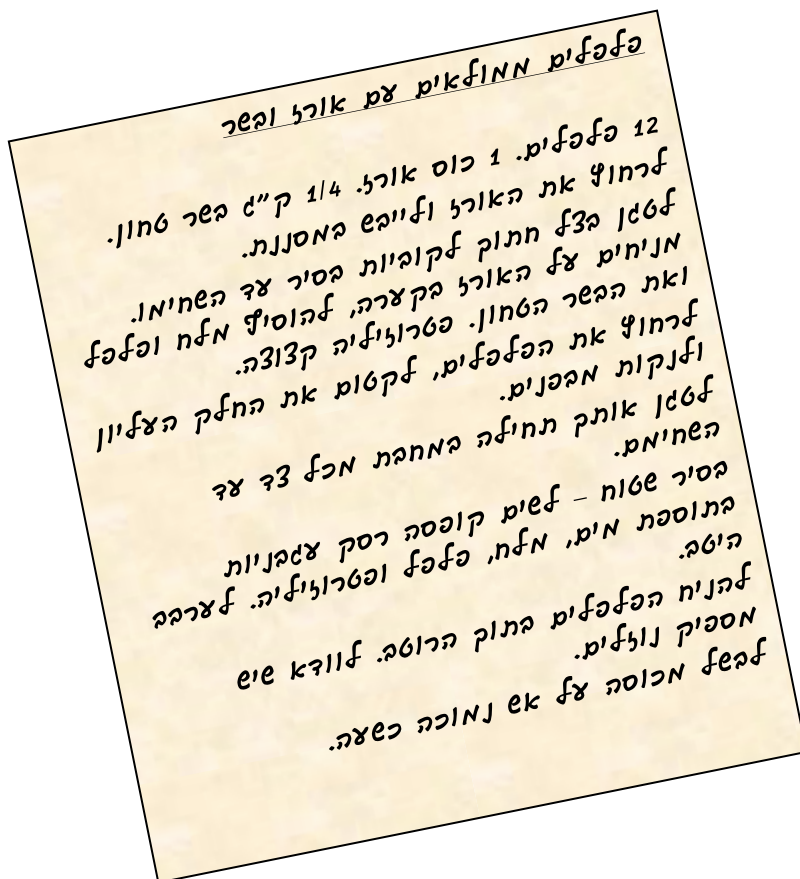 פלפלים ממולאים עם אורז ובשר
12 פלפלים. 1 כוס אורז. 1/4 ק״ג בשר טחון.
לרחוץ את האורז ולייבש במסננת.
לטגן בצל חתוך לקוביות בסיר עד השחימו.
מניחים על האורז בקערה, להוסיף מלח ופלפל
ואת הבשר הטחון. פטרוזיליה קצוצה.
לרחוץ את הפלפלים, לקטום את החלק העליון
ולנקות מבפנים.
לטגן אותך תחילה במחבת מכל צד עד
השחימם.
בסיר שטוח – לשים קופסה רסק עגבניות
בתוספת מים, מלח, פלפל ופטרוזיליה. לערבב
היטב.
להניח הפלפלים בתוך הרוטב. לוודא שיש
מספיק נוזלים.
לבשל מכוסה על אש נמוכה כשעה.